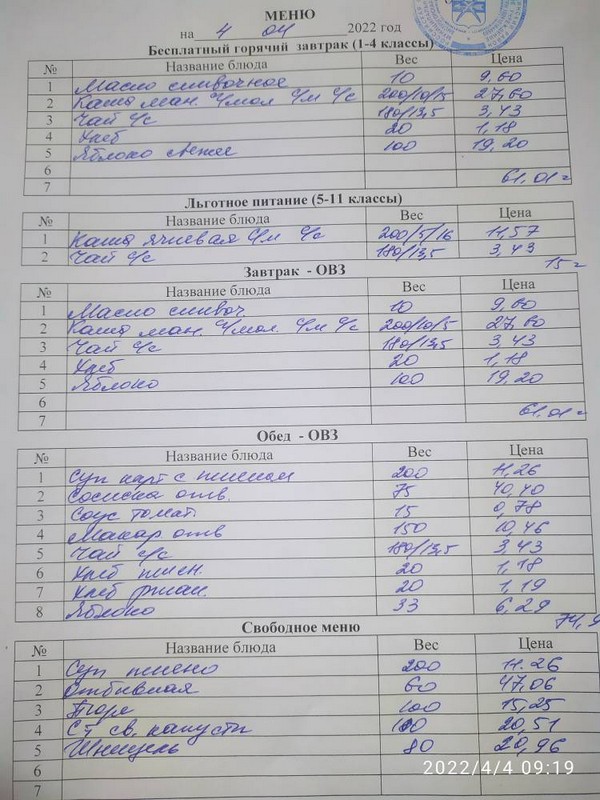 МЕНЮ
на 4 04 2022 год
Бесплатный горячий завтрак (1-4 классы)
№ Название блюда Вес Цена
1 Масло сливочное 10 9,60
2 Каша ман. с/мол с/м с/с 200/10/5 27,60
3 Чай с/с 180/13,5 3,43
4 Хлеб 20 1,18
5 Яблоко свежее 100 19,20
6
7 61,01
Льготное питание (5-11 классы)
№ Название блюда Вес Цена
1 Каша ячневая с/м с/с 200/5/16 11,57
2 Чай с/с 180/13,5 3,43
15
Завтрак - ОВЗ
№ Название блюда Вес Цена
1 Масло сливоч 10 9,60
2 Каша ман. с/мол с/м с/с 200/10/5 27,60
3 Чай с/с 180/13,5 3,43
4 Хлеб 20 1,18
5 Яблоко 100 19,20
6
7 61,01
Обед - ОВЗ
№ Название блюда Вес Цена
1 Суп карт с пшеном 200 11.26
2 Сосиска отв. 75 40,40
3 Соус томат 15 0,78
4 Макар отв 150 10,46
5 Чай с/с 180/13,5 3,43
6 Хлеб пшен. 20 1,18
7 Хлеб ржан. 20 1,19
8 Яблоко 33 6,29
74,9
Свободное меню
№ Название блюда Вес Цена
1 Суп пшено 200 11.26
2 Отбивная 60 47,06
3 Пюре 100 15,25
4 Ст св. капусты 100 20,51
5 Шницель 80 20,96
6
7
2022/4/4 09:19